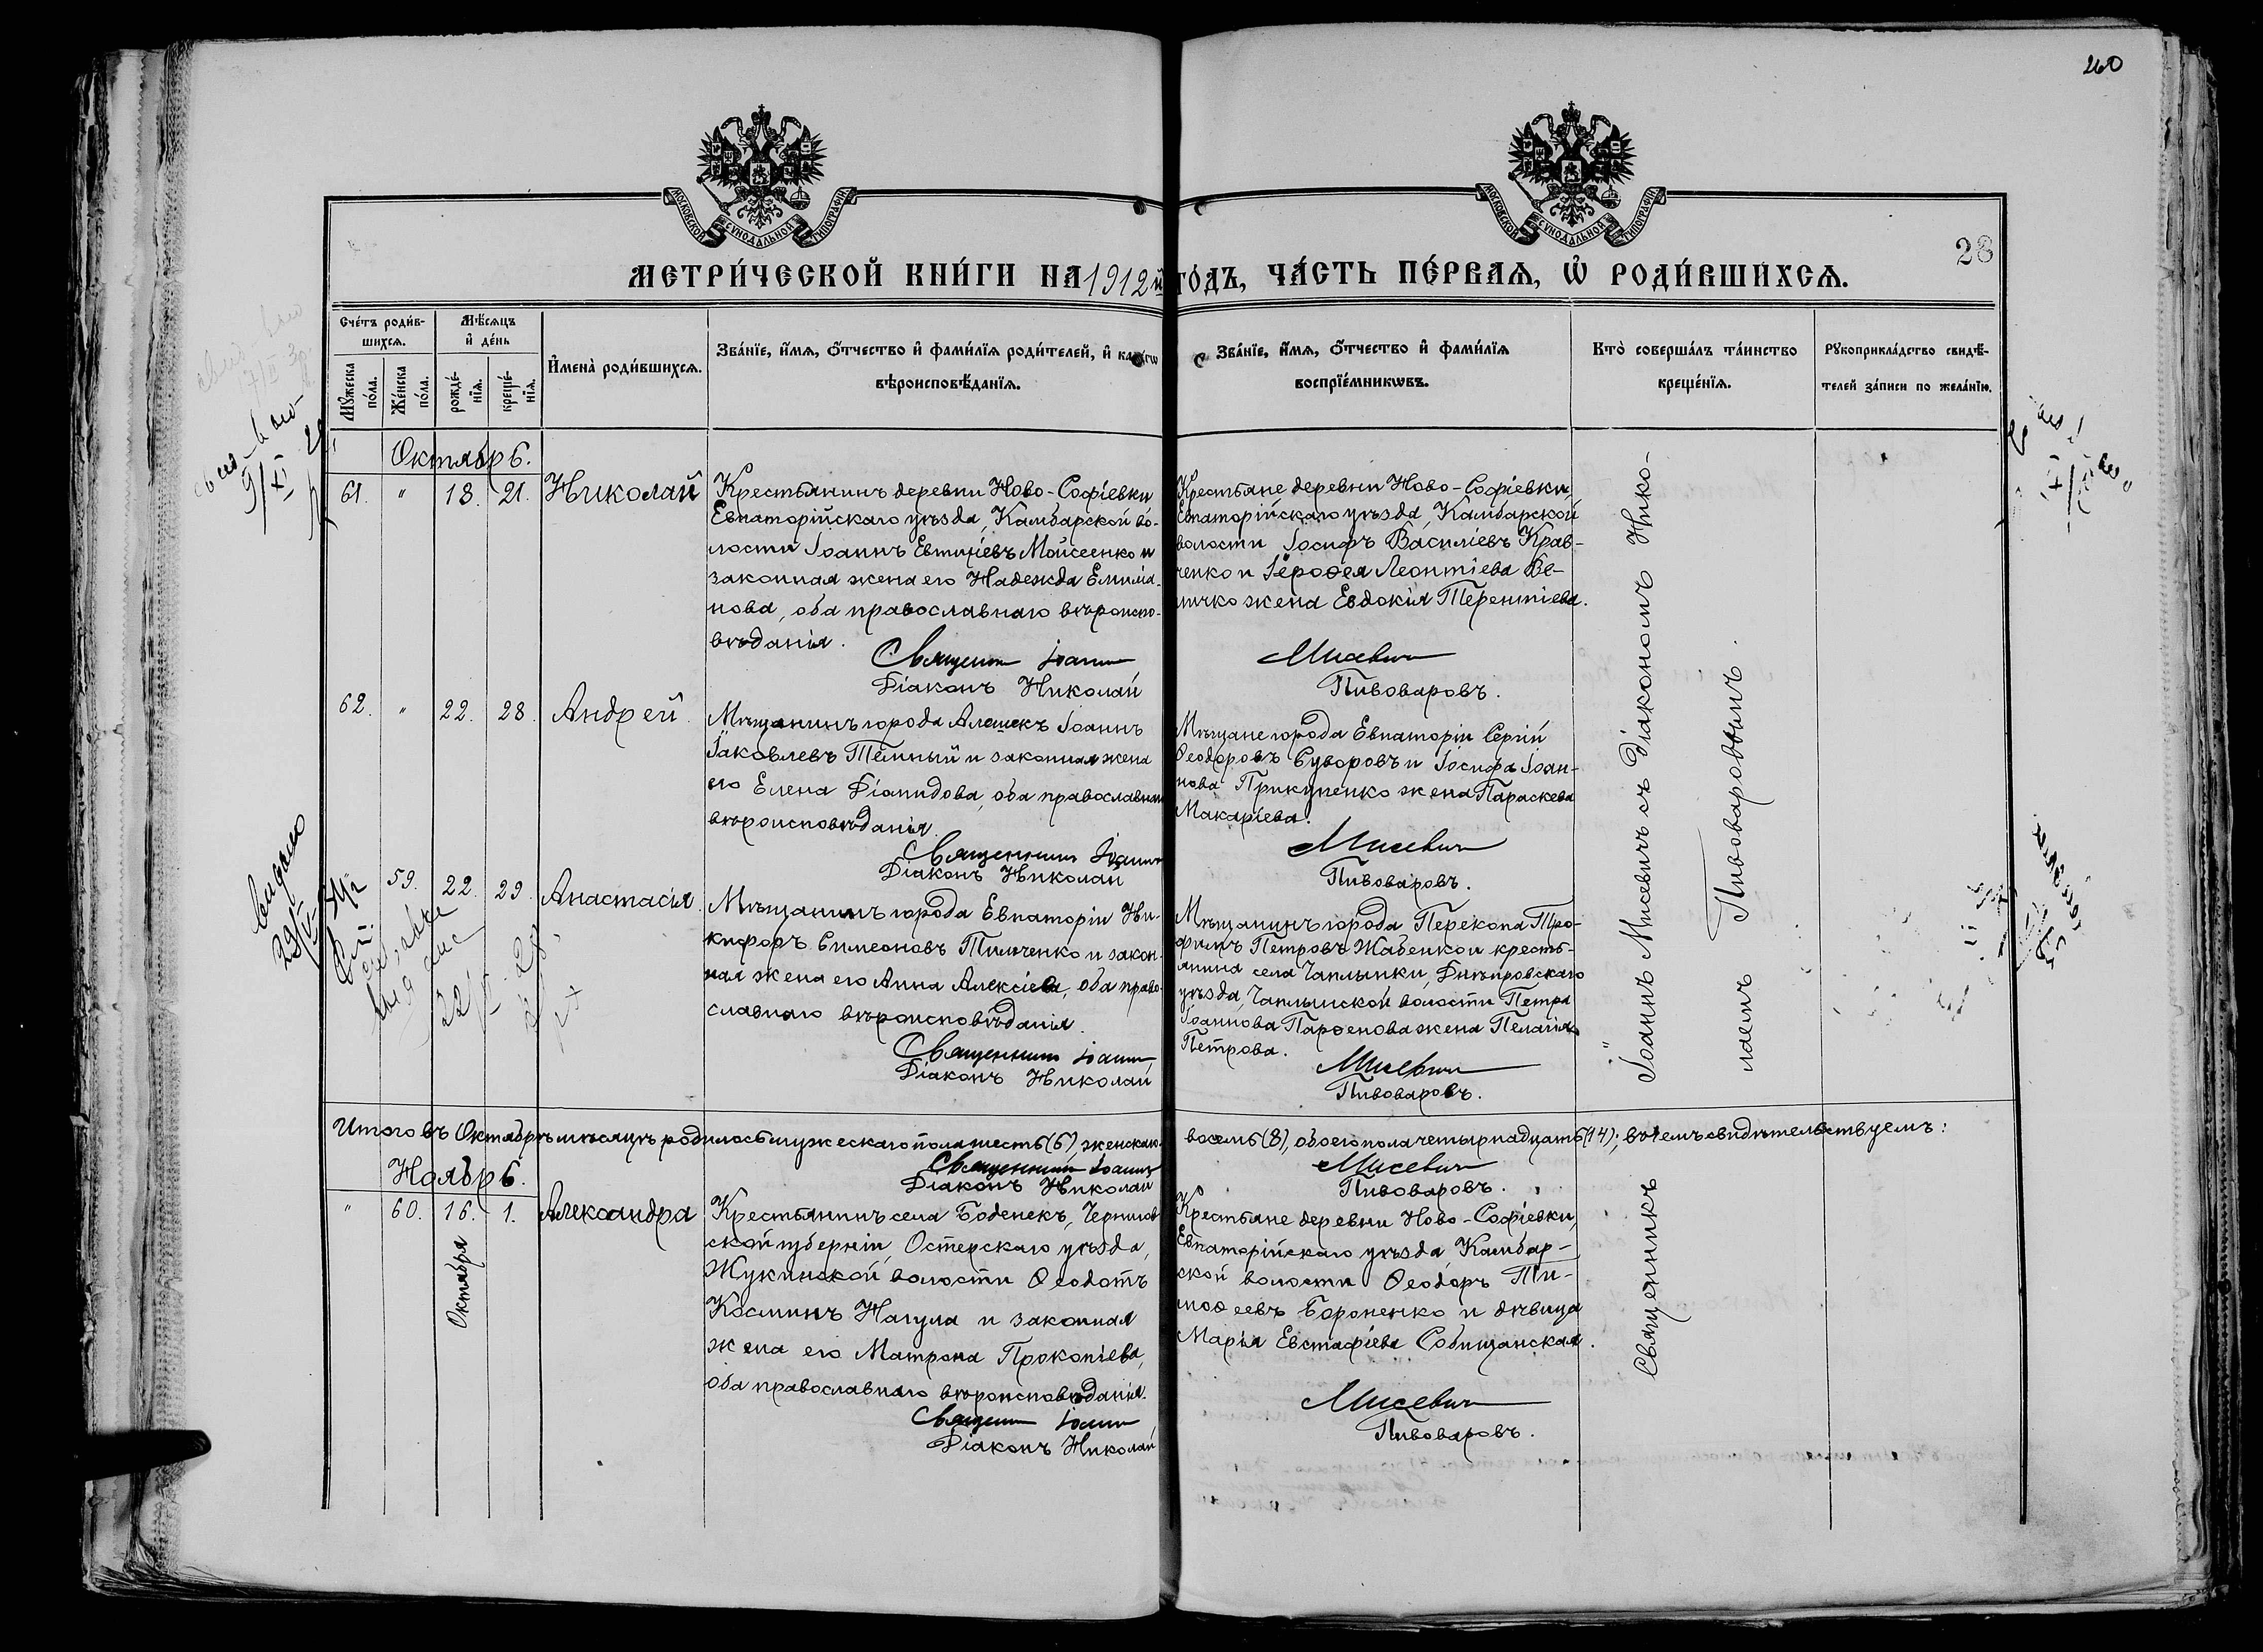 260
28
МОСКОВСКОЙ СѴНОДАЛЬНОЙ ТИПОГРАФІИ
МОСКОВСКОЙ СѴНОДАЛЬНОЙ ТИПОГРАФІИ
МЕТРИ́ЧЕСКОЙ КНИ́ГИ НА 1912й ГО́ДЪ, ЧА́СТЬ ПЕ́РВАЯ, Ѡ РОДИ́ВШИХСЯ.
Сче́тъ роди́в-
шихся.
Мѣ́сяцъ
и де́нь
Мꙋжеска по́ла.
Же́нска по́ла.
рожде́-
нїя.
креще́-
нїя.
Имена̀ роди́вшихся.
Зва́нїе, и́мя, ѻ́тчество и фами́лїя роди́телей, и како́гѡ
вѣроисповѣ́данїя.
Зва́нїе, и́мя, ѻ́тчество и фами́лїя
воспрїе́мникѡвъ.
Кто̀ соверша́лъ та́инство
креще́нїя.
Рꙋкоприкла́дство свидѣ́-
телей за́писи по жела́нїю.
Октябрь.
61. " 18. 21. Николай
Крестьянинъ деревни Ново-Софіевки
Евпаторійскаго уѣзда, Камбарской во-
лости Іоаннъ Евтихіевъ Мойсеенко и
законная жена его Надежда Емилiа-
нова, оба православнаго вѣроиспо-
вѣданія.
Священн Іоаннъ
Діаконъ Николай
Крестьяне деревни Ново-Софіевки,
Евпаторійскаго уѣзда, Камбарской
волости Іосифъ Василіевъ Крав-
ченко и Іероѳея Леонтіева Ве-
личко жена Евдокія Терентіева.
Мисевичъ
Пивоваровъ.
62. " 22. 28. Андрей
Мѣщанинъ города Алешекъ Іоаннъ
Іаковлевъ Тёмный и законная жена
его Елена Діомидова, оба православнаго
вѣроисповѣданія.
Священникъ Іоаннъ
Діаконъ Николай
Мѣщане города Евпаторіи Сергій
Ѳеодоровъ Суворовъ и Іосифа Іоан-
нова Прикупенко жена Параскева
Макаріева.
Мисевичъ
Пивоваровъ.
59. 22. 29. Анастасія
Мѣщанинъ города Евпаторіи Ни-
кифоръ Симеоновъ Тимченко и закон-
ная жена его Анна Алексіева, оба право-
славнаго вѣроисповѣданія.
Священникъ Іоаннъ
Діаконъ Николай
Мѣщанинъ города Перекопа Тро-
фимъ Петровъ Жабенко и кресть-
янина села Чаплынки, Днѣпровскаго
уѣзда, Чаплынской волости Петра
Іоаннова Парѳенова жена Пелагія
Петрова.
Мисевичъ
Пивоваровъ.
Итого въ Октябрѣ мѣсяцѣ родилось мужескаго пола шесть (6), женскаго восемь (8), обоего пола четырнадцать (14); въ чемъ свидѣтельствуемъ:
Священникъ Іоаннъ Мисевичъ
Діаконъ Николай Пивоваровъ.
Ноябрь.
" 60. 16. 1. Александра
Октября
Крестьянинъ села Боденекъ, Чернигов-
ской губерніи, Остерскаго уѣзда,
Жукинской волости Ѳеодотъ
Косминъ Нагула и законная
жена его Матрона Прокопіева,
оба православнаго вѣроисповѣданія.
Священн Іоаннъ
Діаконъ Николай
Крестьяне деревни Ново-Софіевки,
Евпаторійскаго уѣзда Камбар-
ской волости Ѳеодоръ Ти-
моѳеевъ Бороненко и дѣвица
Марія Евстафіева Собищанская.
Мисевичъ
Пивоваровъ.
Священникъ Іоаннъ Мисевичъ съ діакономъ Нико-
лаемъ Пивоваровымъ.